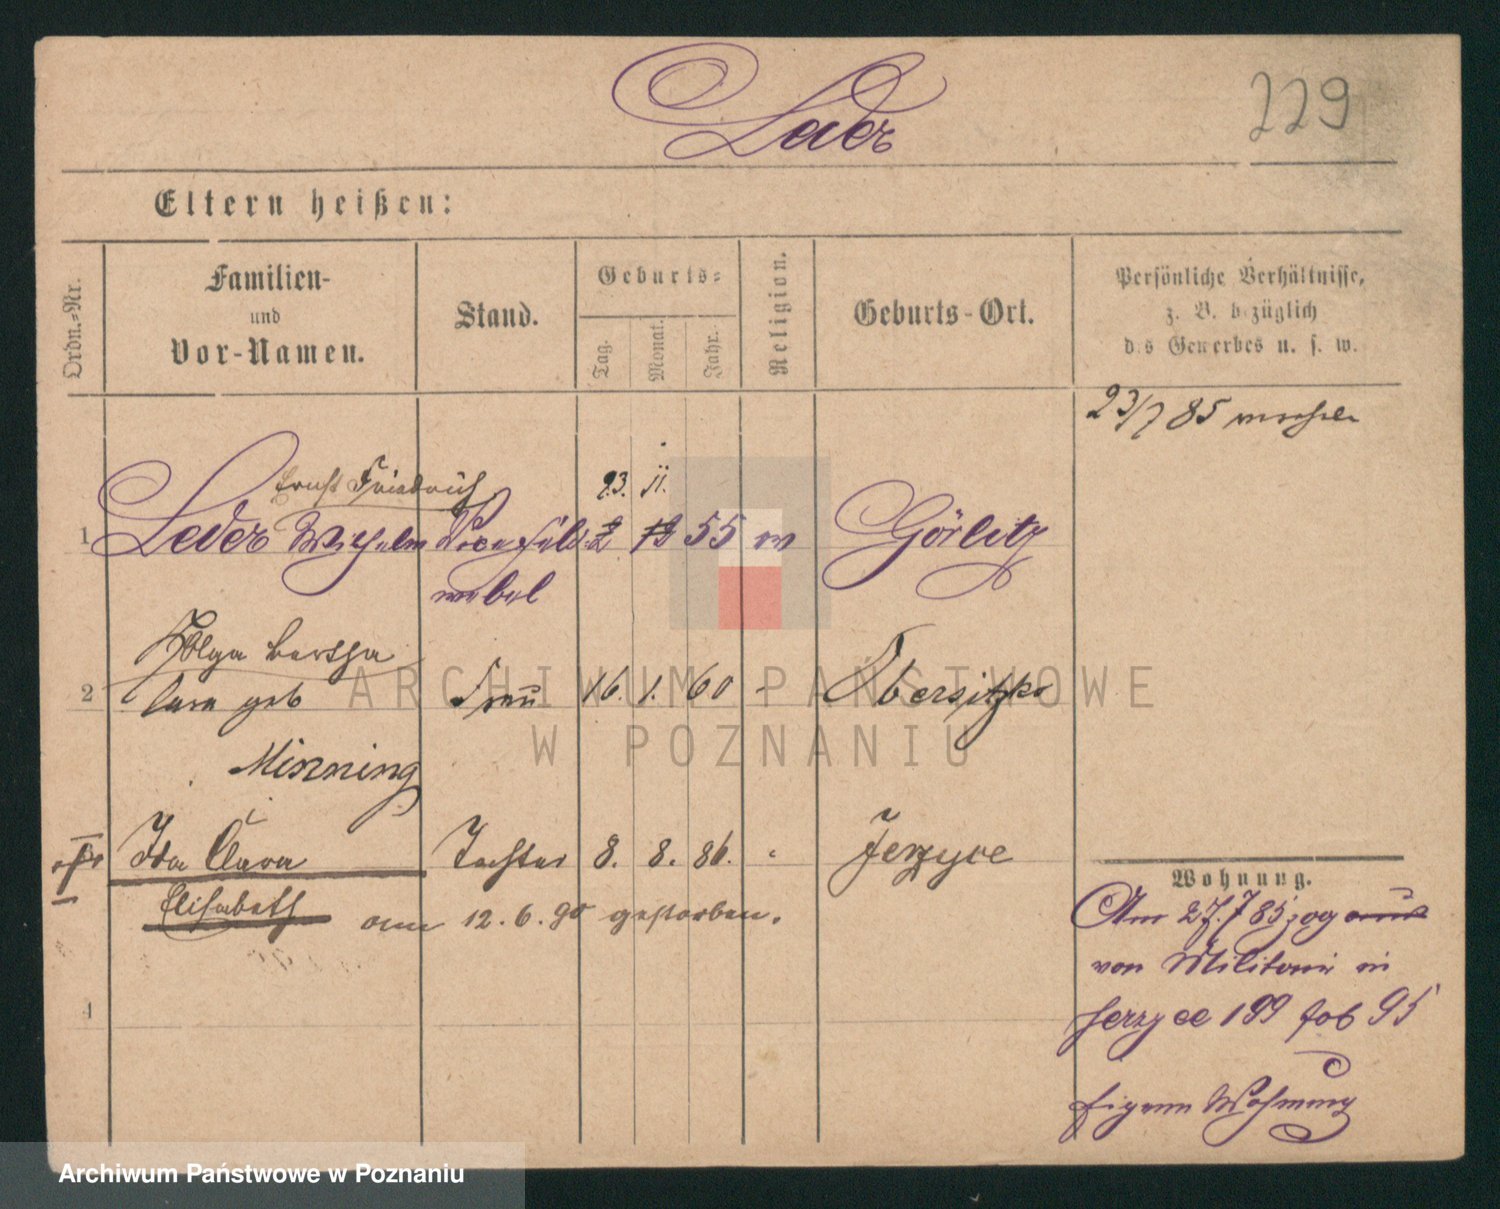 Leder
229
Eltern heißen:
Ordn.-Nr.
Familien-
und
Vor-Namen.
Stand.
Geburts-
Tag.
Monat.
Jahr.
Religion.
Geburts-Ort.
Persönliche Verhältnisse,
z. B. bezüglich
des Gewerbes u. s. w.
23/7 85
Ernst Friedrich 23. 11.
1 Leder Wilhelm 2 12 55 Görlitz
webel
Bertha
2 Clara geb Frau 16. 1. 60 - Obersitzko
Minning
Ida Clara Tochter 8. 8. 86. Jerzyce
Elisabeth am 12. 6. 90 gestorben.
4
Wohnung.
Am 27.7 85 zog
von Militair in
Jerzyce 199 95
Eigene Wohnung
ARCHIWUM PAŃSTWOWE
W POZNANIU
Archiwum Państwowe w Poznaniu